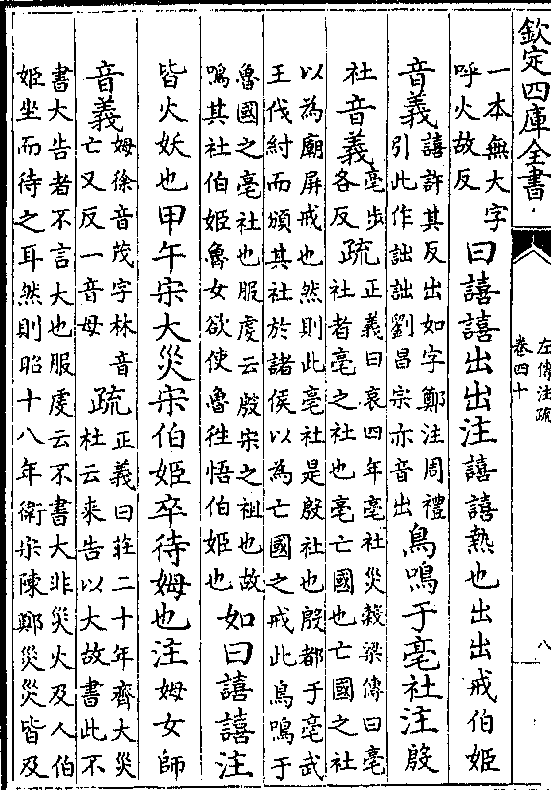 欽定四庫全書
左傳注疏
卷四十
八
一本無大字
呼火故反
曰譆譆出出注譆譆熱也出出戒伯姬
音義
譆許其反出如字鄭注周禮
引此作詘詘劉昌宗亦音出
鳥鳴于亳社注殷
社音義
亳步
各反
疏
正義曰哀四年亳社災穀梁傳曰亳
社者亳之社也亳亡國也亡國之社
以為廟屏戒也然則此亳社是殷社也殷都于亳武
王伐紂而頒其社於諸侯以為亡國之戒此鳥鳴于
魯國之亳社也服虔云殷宋之祖也故
鳴其社伯姬魯女欲使魯徃悟伯姬也
如曰譆譆注
皆火妖也甲午宋大災宋伯姬卒待姆也注姆女師
音義
姆徐音茂字林音
亡又反一音母
疏
正義曰莊二十年齊大災
杜云来告以大故書此不
書大告者不言大也服虔云不書大非災火及人伯
姬坐而待之耳然則昭十八年衛宋陳鄭災災皆及